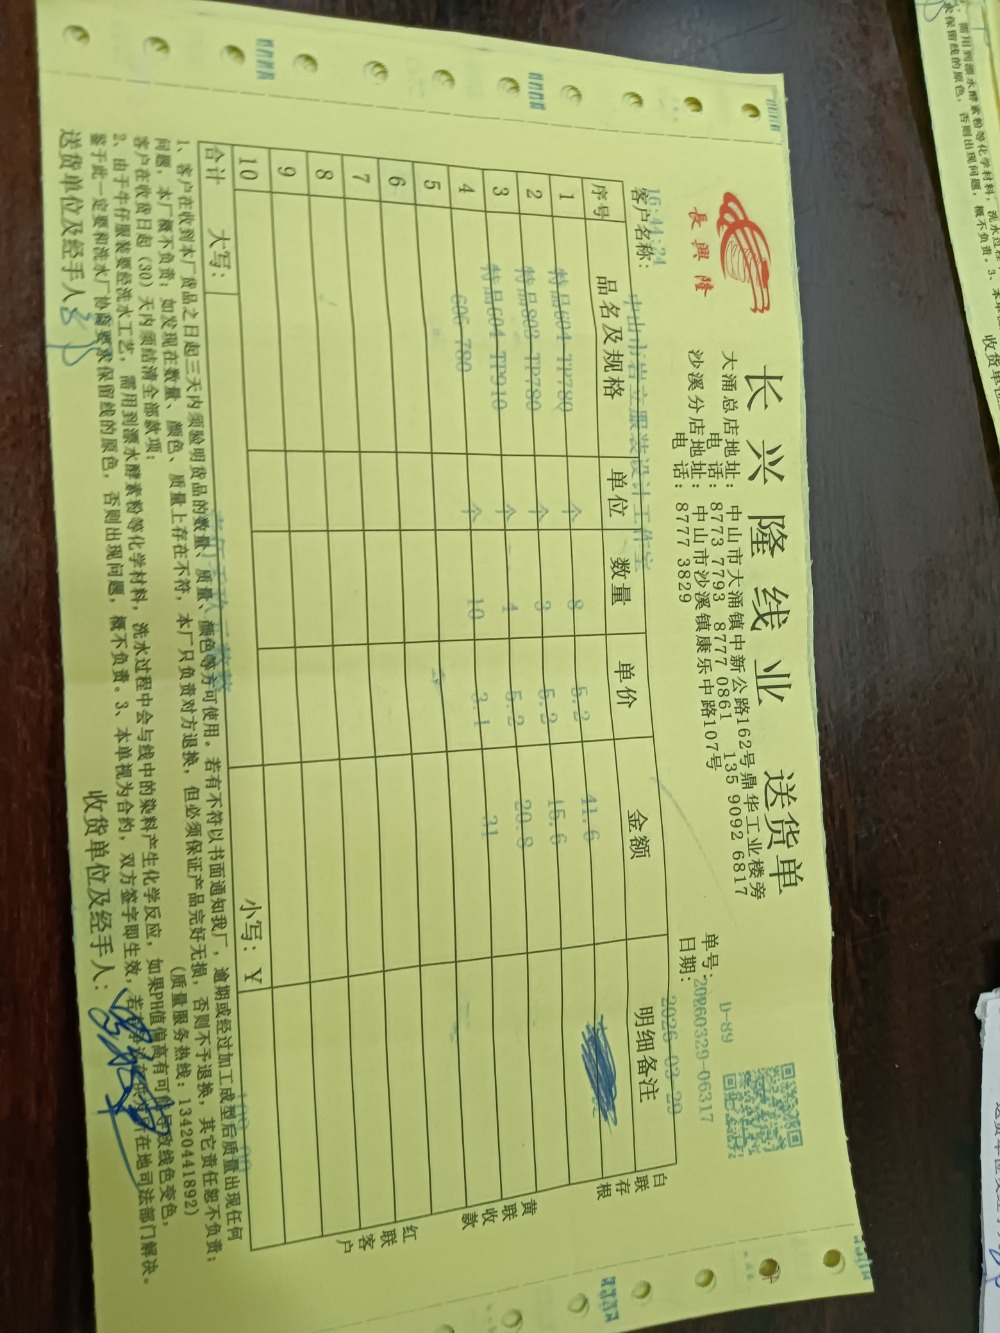 長興隆
长兴隆线业 送货单
大涌总店地址：中山市大涌镇中新公路162号鼎华工业楼旁
电 话：8773 7793 8777 0861 135 9092 6817
沙溪分店地址：中山市沙溪镇康乐中路107号
电 话：8777 3829
D-89
单号：20260329-06317
日期：2026-03-29
16:44:24
客户名称：中山市岩立服装设计工作室
序号 品名及规格 单位 数量 单价 金额 明细备注
1 特品604 TP780 个 8 5.2 41.6
2 特品803 TP780 个 3 5.2 15.6
3 特品604 TP910 个 4 5.2 20.8
4 606 780 个 10 3.1 31
5
6
7
8
9
10
合计 大写： 小写：Y
白联存根
黄联收款
红联客户
1、客户在收到本厂货品之日起三天内须验明货品的数量、质量、颜色等方可使用。若有不符以书面通知我厂，逾期或经过加工成型后质量出现任何
问题，本厂概不负责；如发现在数量、颜色、质量上存在不符，本厂只负责对方退换，但必须保证产品完好无损，否则不予退换，其它责任恕不负责；
客户在收货日起（30）天内须结清全部款项； （质量服务热线：13420441892）
2、由于牛仔服装要经洗水工艺，需用到漂水酵素粉等化学材料，洗水过程中会与线中的染料产生化学反应，如果PH值偏高有可能导致线色变色，
鉴于此一定要和洗水厂协商要求保留线的原色，否则出现问题，概不负责。3、本单视为合约，双方签字即生效，若 在地司法部门解决。
送货单位及经手人：
收货单位及经手人：